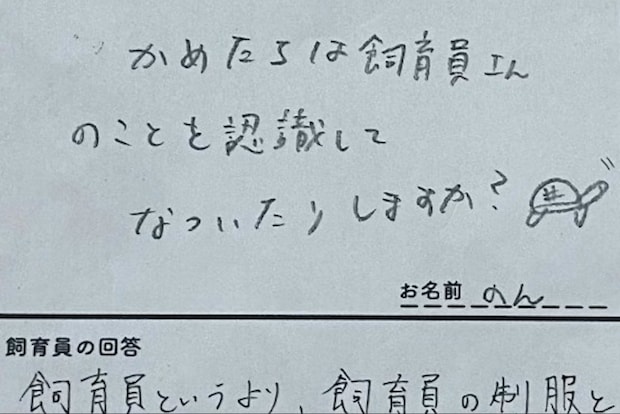 かめたろは飼育員さん
のことを認識して
なついたりしますか?
お名前 のん
飼育員の回答
飼育員というより、飼育員の制服と